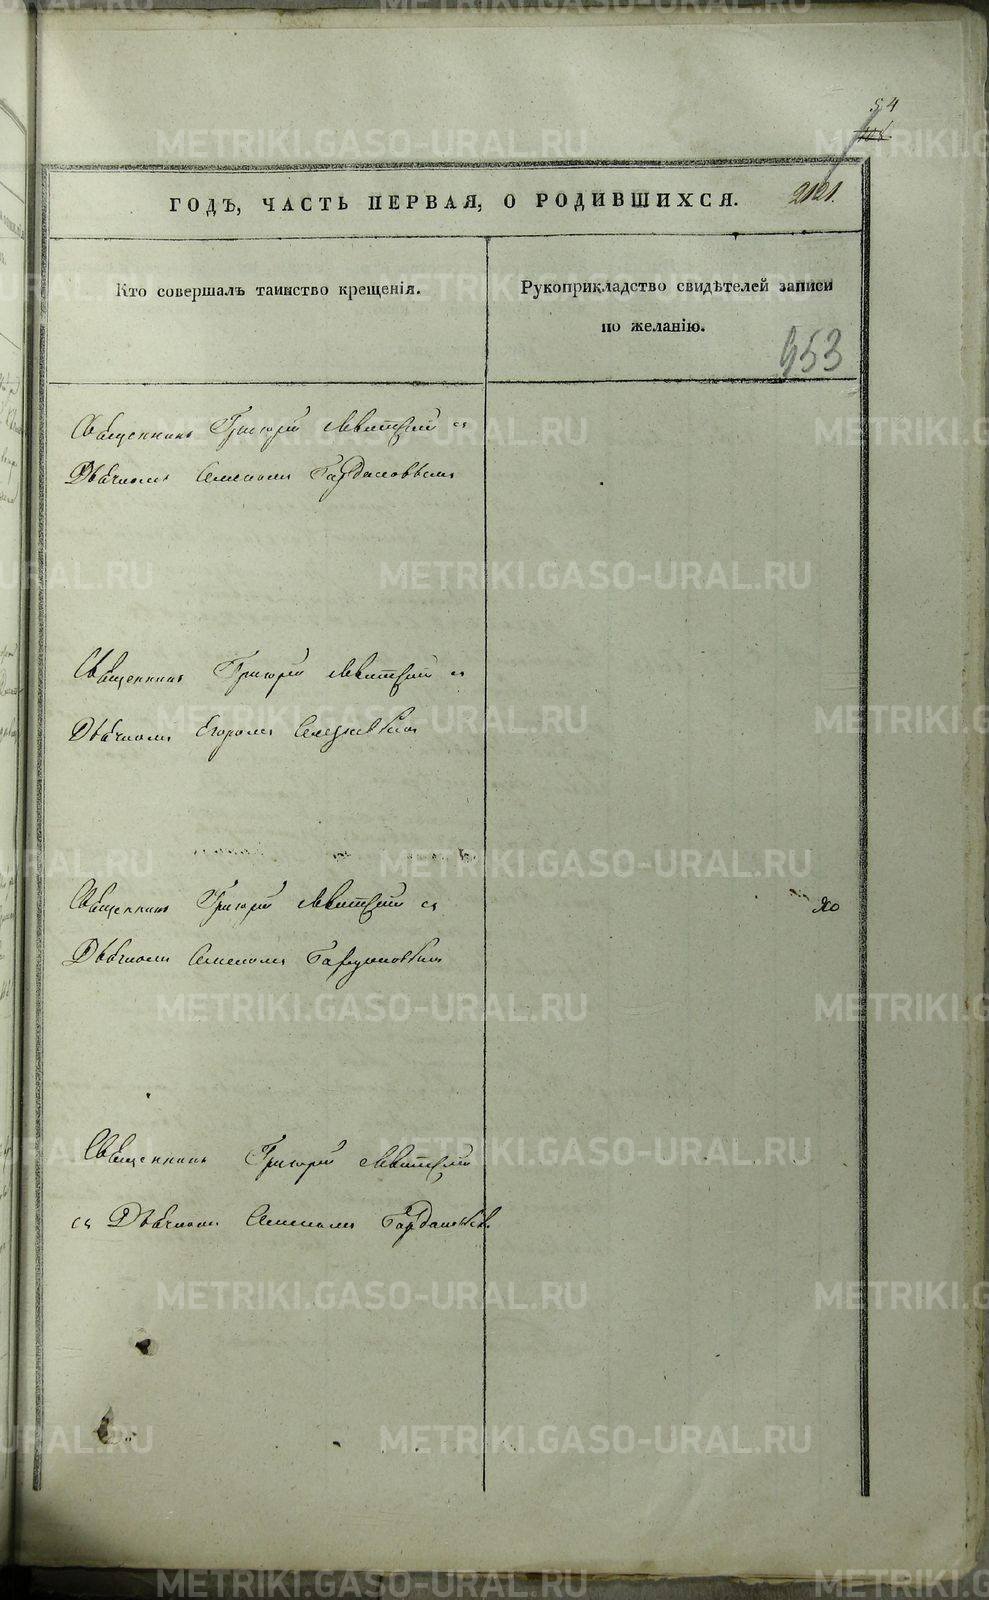 54
2121.
ГОДЪ, ЧАСТЬ ПЕРВАЯ, О РОДИВШИХСЯ.
Кто совершалъ таинство крещенія.
Рукоприкладство свидѣтелей записи
по желанію.
953
Священникъ Григорій Левитскій съ
Дьячкомъ Семеномъ
Священникъ Григорій Левитскій съ
Дьячкомъ Егоромъ
Священникъ Григорій Левитскій съ
Дьячкомъ Семеномъ
Священникъ Григорій Левитскій
съ Дьячкомъ Семеномъ
METRIKI.GASO-URAL.RU